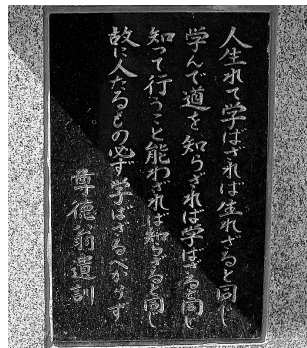 人生れて学ばざれば生れざると同じ
学んで道を知らざれば学ばざると同じ
知って行うこと能わざれば知らざると同じ
故に人たるもの必ず学ばざるべからず
尊徳翁遺訓